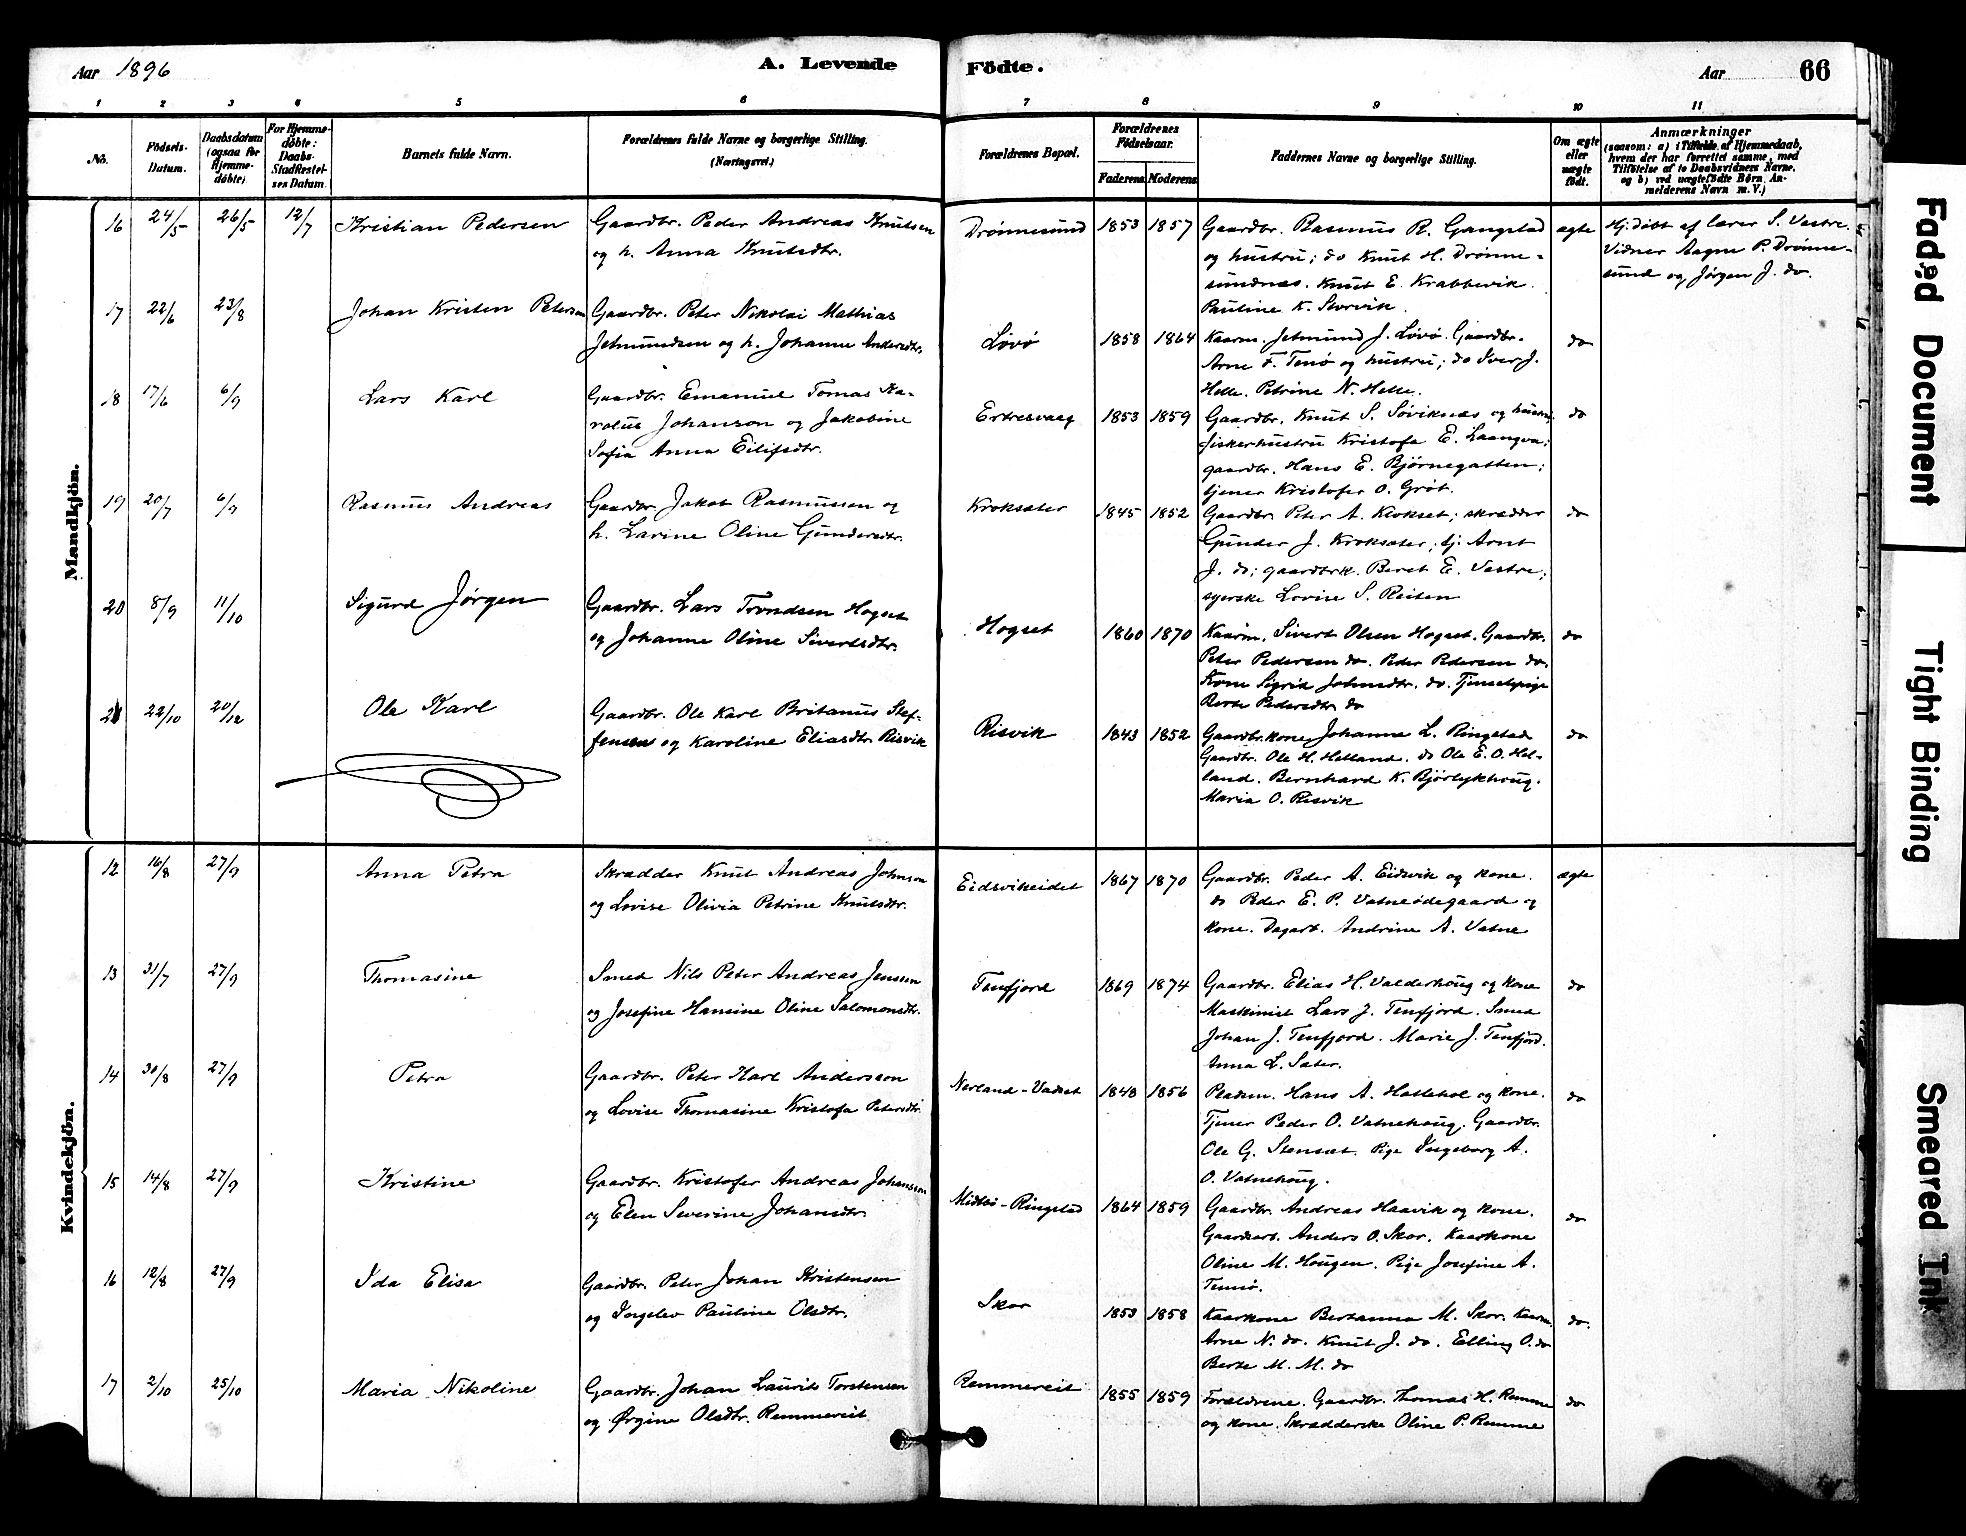 Aar 1896
A. Levende Födte.
Aar 66
1 2 3 4 5 6 7 8 9 10 11
No.
Födsels-Datum.
Daabsdatum (ogsaa for Hjemmedöbte)
For Hjemmedöbte: Daabs-Stadfæstelses Datum.
Barnets fulde Navn.
Forældrenes fulde Navne og borgerlige Stilling.
(Næringsvei.)
Forældrenes Bopæl.
Forældrenes Födselsaar.
Faderens Moderens
Faddernes Navne og borgerlige Stilling.
Om ægte eller uægte födt.
Anmærkninger
(saasom: a) i Tilfælde af Hjemmedaab,
hvem der har forrettet samme, med
Tilföielse af to Daabsvidners Navne,
og b) ved uægtefödte Börn An-
melderens Navn m. V.)
Mandkjön.
16 24/5 26/5 12/7 Kristian Pedersen
Gaardbr. Peder Andreas Knutsen
og h. Anna Knutsdtr.
Drønnesund 1853 1857
Gaardbr. Rasmus R. Gangstad
og hustru; do Knut H. Drønne-
sundnes. Knut E. Krabbevik.
Pauline K. Storvik.
ægte
Hj. døbt af lærer S. Vestre.
Vidner Aagne P. Drønne-
sund og Jørgen J. do.
17 22/6 23/8 Johan Kristen Peterson
Gaardbr. Peter Nikolai Mathias
Jetmundsen og h. Johanne Andersdtr.
Løvø 1858 1864
Kaarm. Jetmund J. Løvø. Gaardbr.
Arne F. Tenø og hustru; do Iver J.
Helle. Petrine N. Helle.
do
18 17/6 6/9 Lars Karl
Gaardbr. Emanuel Tomas Ka-
rolus Johanson og Jakobine
Sofia Anna Eilifsdtr.
Ertresvaag 1853 1859
Gaardbr. Knut S. Søviknæs og hustru;
fiskerhustru Kristofa E. Laangva;
gaardbr. Hans E. Bjørnegatten;
tjener Kristofer O. Grøt.
do
19 20/7 6/9 Rasmus Andreas
Gaardbr. Jakob Rasmussen og
h. Larine Oline Gundersdtr.
Kroksæter 1845 1852
Gaardbr. Peter A. Krokset; skrædder
Gunder J. Kroksæter; tj. Arnt
J. do; gaardbrk. Beret E. Vestre;
syerske Lovise S. Reiten
do
20 8/9 11/10 Sigurd Jørgen
Gaardbr. Lars Trondsen Hogset
og Johanne Oline Sivertsdtr.
Hogset 1860 1870
Kaarm. Sivert Olsen Hogset. Gaardbr.
Peter Pedersen do. Peder Pedersen do.
Kone Sigrid Johnsdtr. do. Tjenestpige
Berte Pedersdtr do
do
21 22/10 20/12 Ole Karl
Gaardbr. Ole Karl Britanus Stef-
fensen og Karoline Eliasdtr. Risvik
Risvik 1843 1852
Gaardbr.kone Johanne L. Ringstad
Gaardbr. Ole H. Helland. do Ole E. O. Hel-
land. Bernhard K. Bjørlykhoug.
Maria O. Risvik
do
Kvindekjön.
12 16/8 27/9 Anna Petra
Skrædder Knut Andreas Johnson
og Lovise Olivia Petrine Knutsdtr.
Eidsvikeidet 1867 1870
Gaardbr. Peder A. Eidsvik og kone.
do Peder E. P. Vatneødegaard og
kone. Dagarb. Andrine A. Vatne
ægte
13 31/7 27/9 Thomasine
Smed Nils Peter Andreas Jensen
og Josefine Hansine Oline Salomonsdtr.
Tenfjord 1869 1874
Gaardbr. Elias H. Valderhoug og kone
Maskinist Lars J. Tenfjord. Smed
Johan J. Tenfjord. Marie J. Tenfjord.
Anna L. Sæter.
do
14 30/8 27/9 Petra
Gaardbr. Peter Karl Andersson
og Lovise Thomasine Kristofa Petersdtr.
Nerland-Vadset 1848 1856
Pladsm. Hans A. Hellehol og kone.
Tjener Peder O. Vatnehoug. Gaardbr.
Ole G. Stenset. Pige Ingeborg A.
O. Vatnehoug.
do
15 14/8 27/9 Kristine
Gaardbr. Kristofer Andreas Johanson
og Elen Severine Johansdtr.
Midtbø-Ringstad 1864 1859
Gaardbr. Andreas Haavik og kone.
Gaardarb. Anders O. Skor. Kaarkone
Oline M. Hougen. Pige Josefine A.
Tennø.
do
16 12/8 27/9 Ida Elisa
Gaardbr. Peter Johan Kristensen
og Ingelev Pauline Olsdtr.
Skor 1853 1858
Kaarkone Bertanna M. Skor. Kaarm.
Arne N. do. Knut J. do. Elling O. do
Berte M. M. do
do.
17 2/10 25/10 Maria Nikoline
Gaardbr. Johan Laurits Torstensen
og Ørgine Olsdtr. Remmereit
Remmereit 1855 1859
Forældrene. Gaardbr. Thomas H. Remme
og kone. Skrædderske Oline P. Remme
do
Faded Document
Tight Binding
Smeared Ink